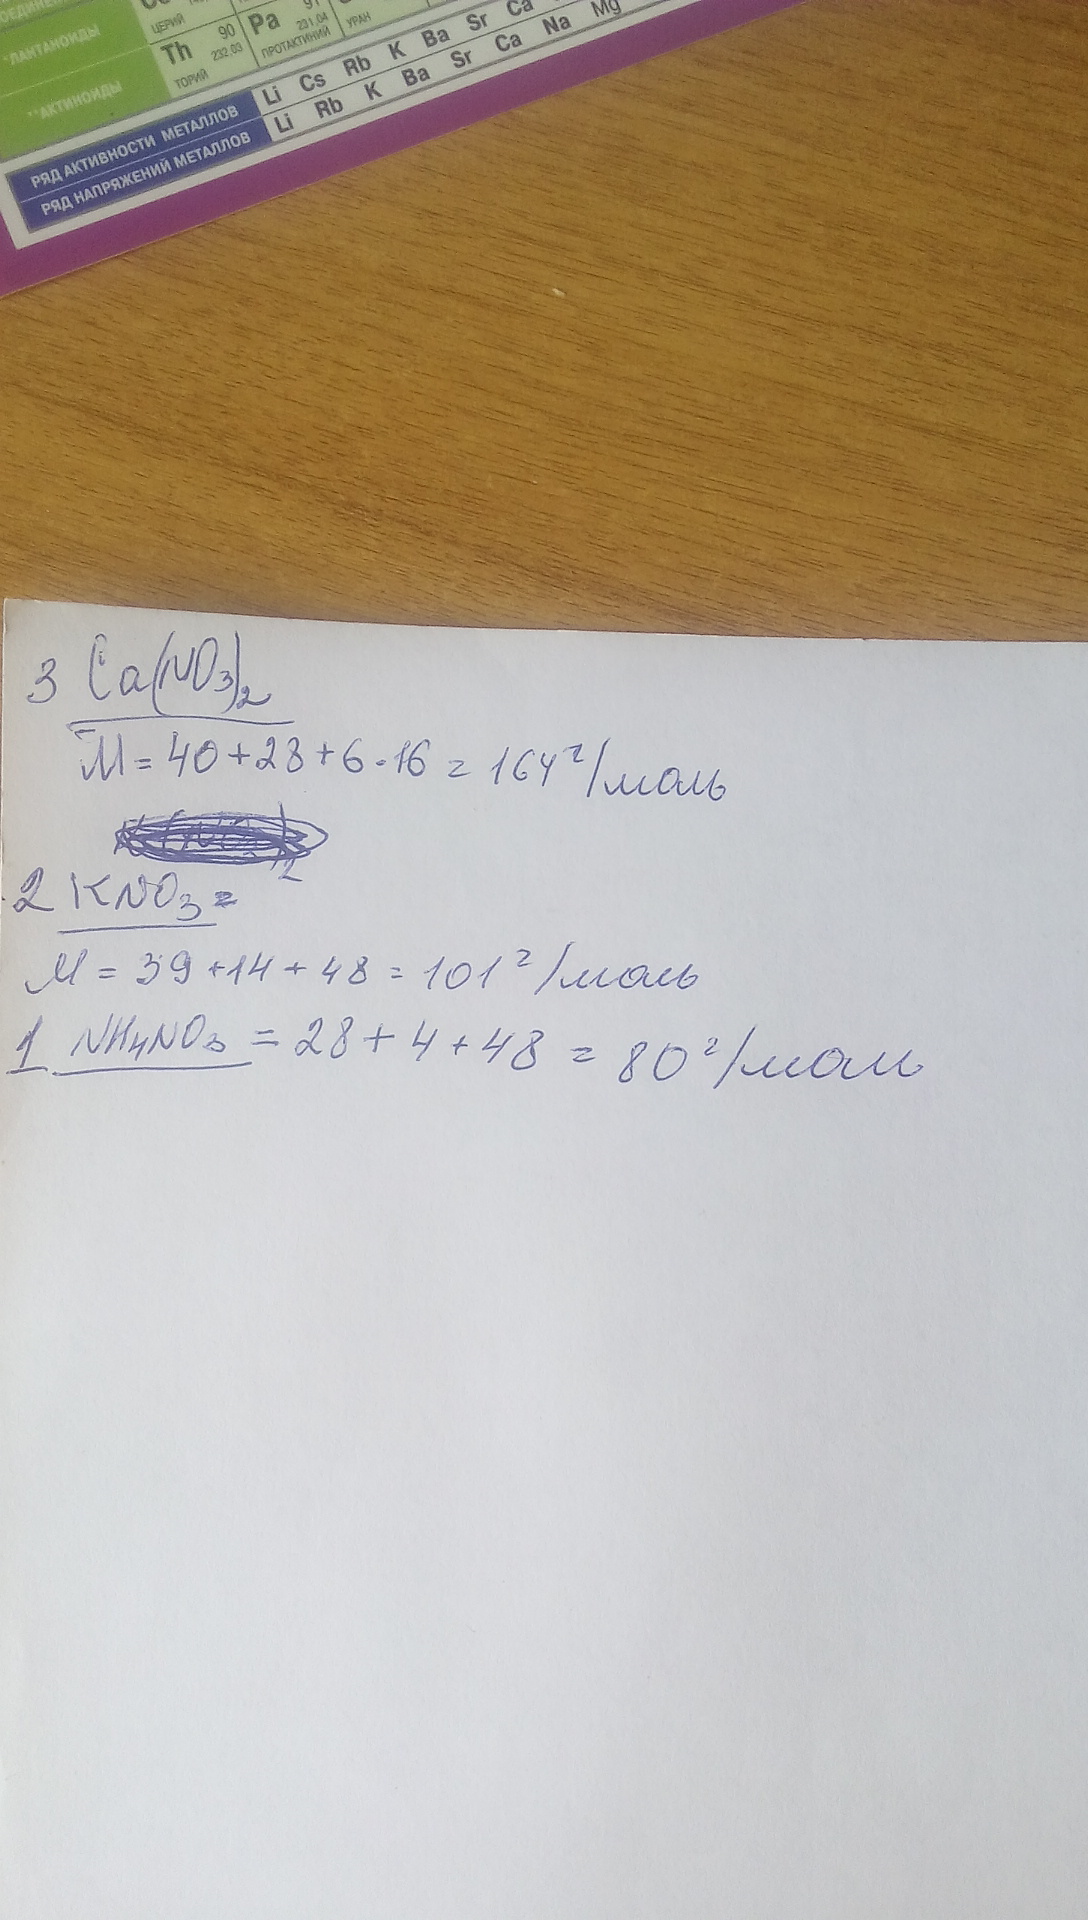 *ЛАНТАНОИДЫ
ЦЕРИЙ
90
Th
232.03
ТОРИЙ
Pa
231.04
ПРОТАКТИНИЙ
УРАН
**АКТИНОИДЫ
РЯД АКТИВНОСТИ МЕТАЛЛОВ Li Cs Rb K Ba Sr Ca
РЯД НАПРЯЖЕНИЙ МЕТАЛЛОВ Li Rb K Ba Sr Ca Na Mg
3 Ca(NO3)2
M = 40+28+6·16 = 164 г/моль
2 KNO3 =
M = 39+14+48 = 101 г/моль
1 NH4NO3 = 28+4+48 = 80 г/моль